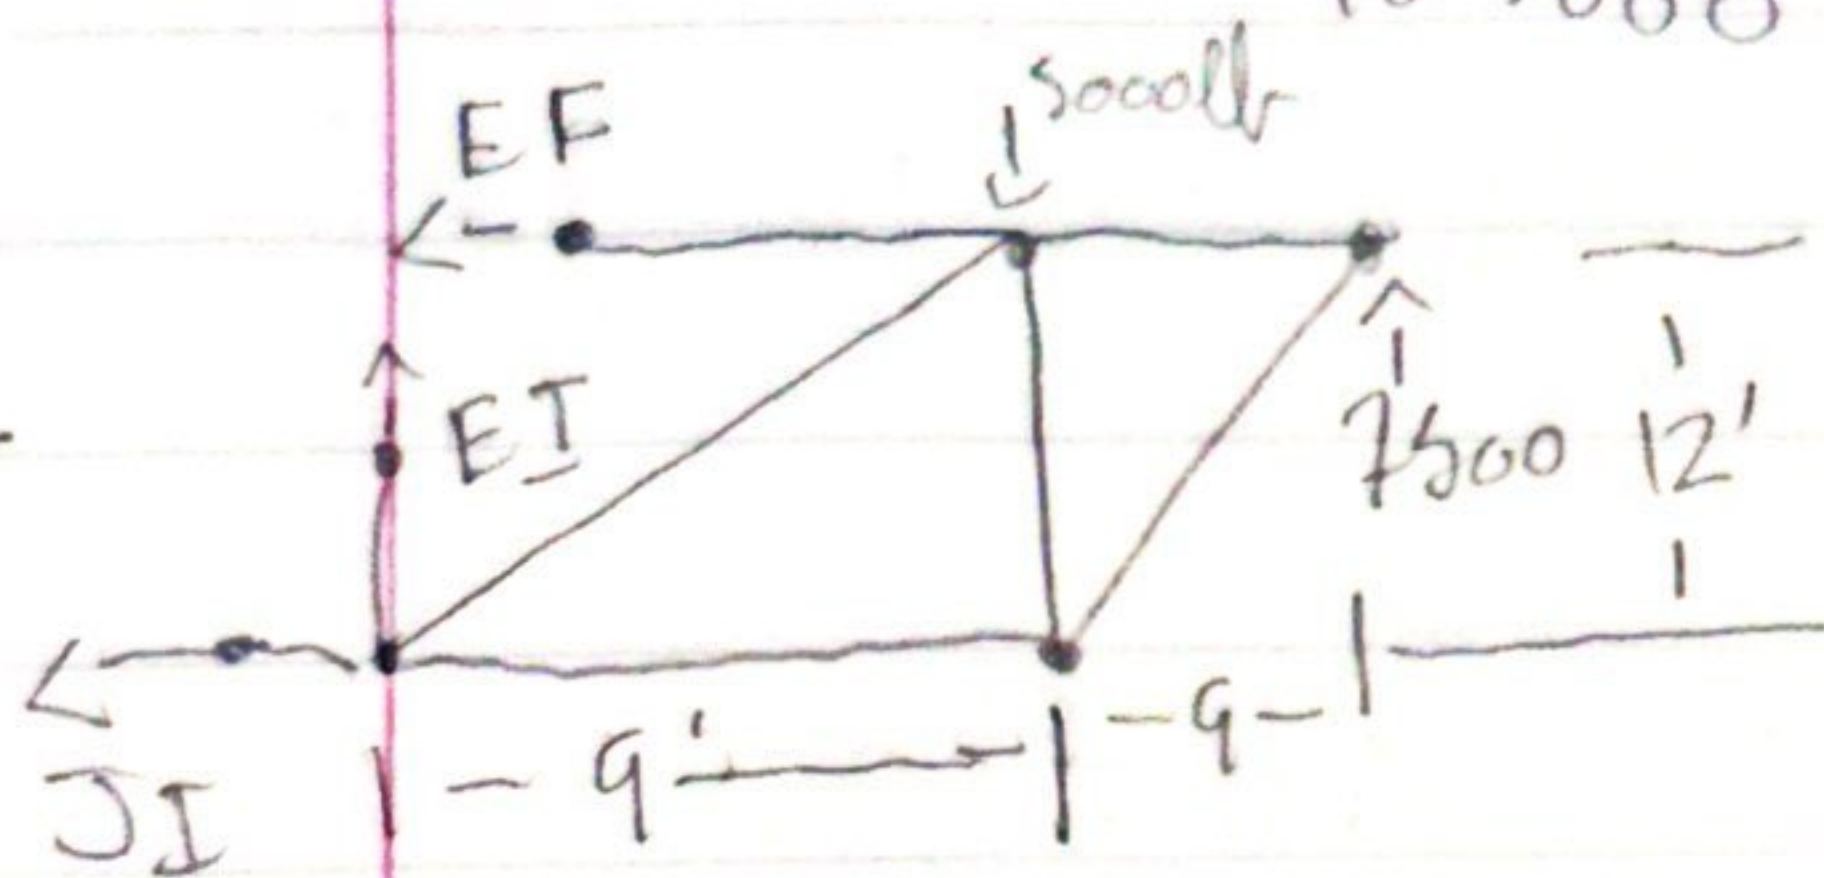 EF
5000lb
EI
7500
12'
9'
9
JI